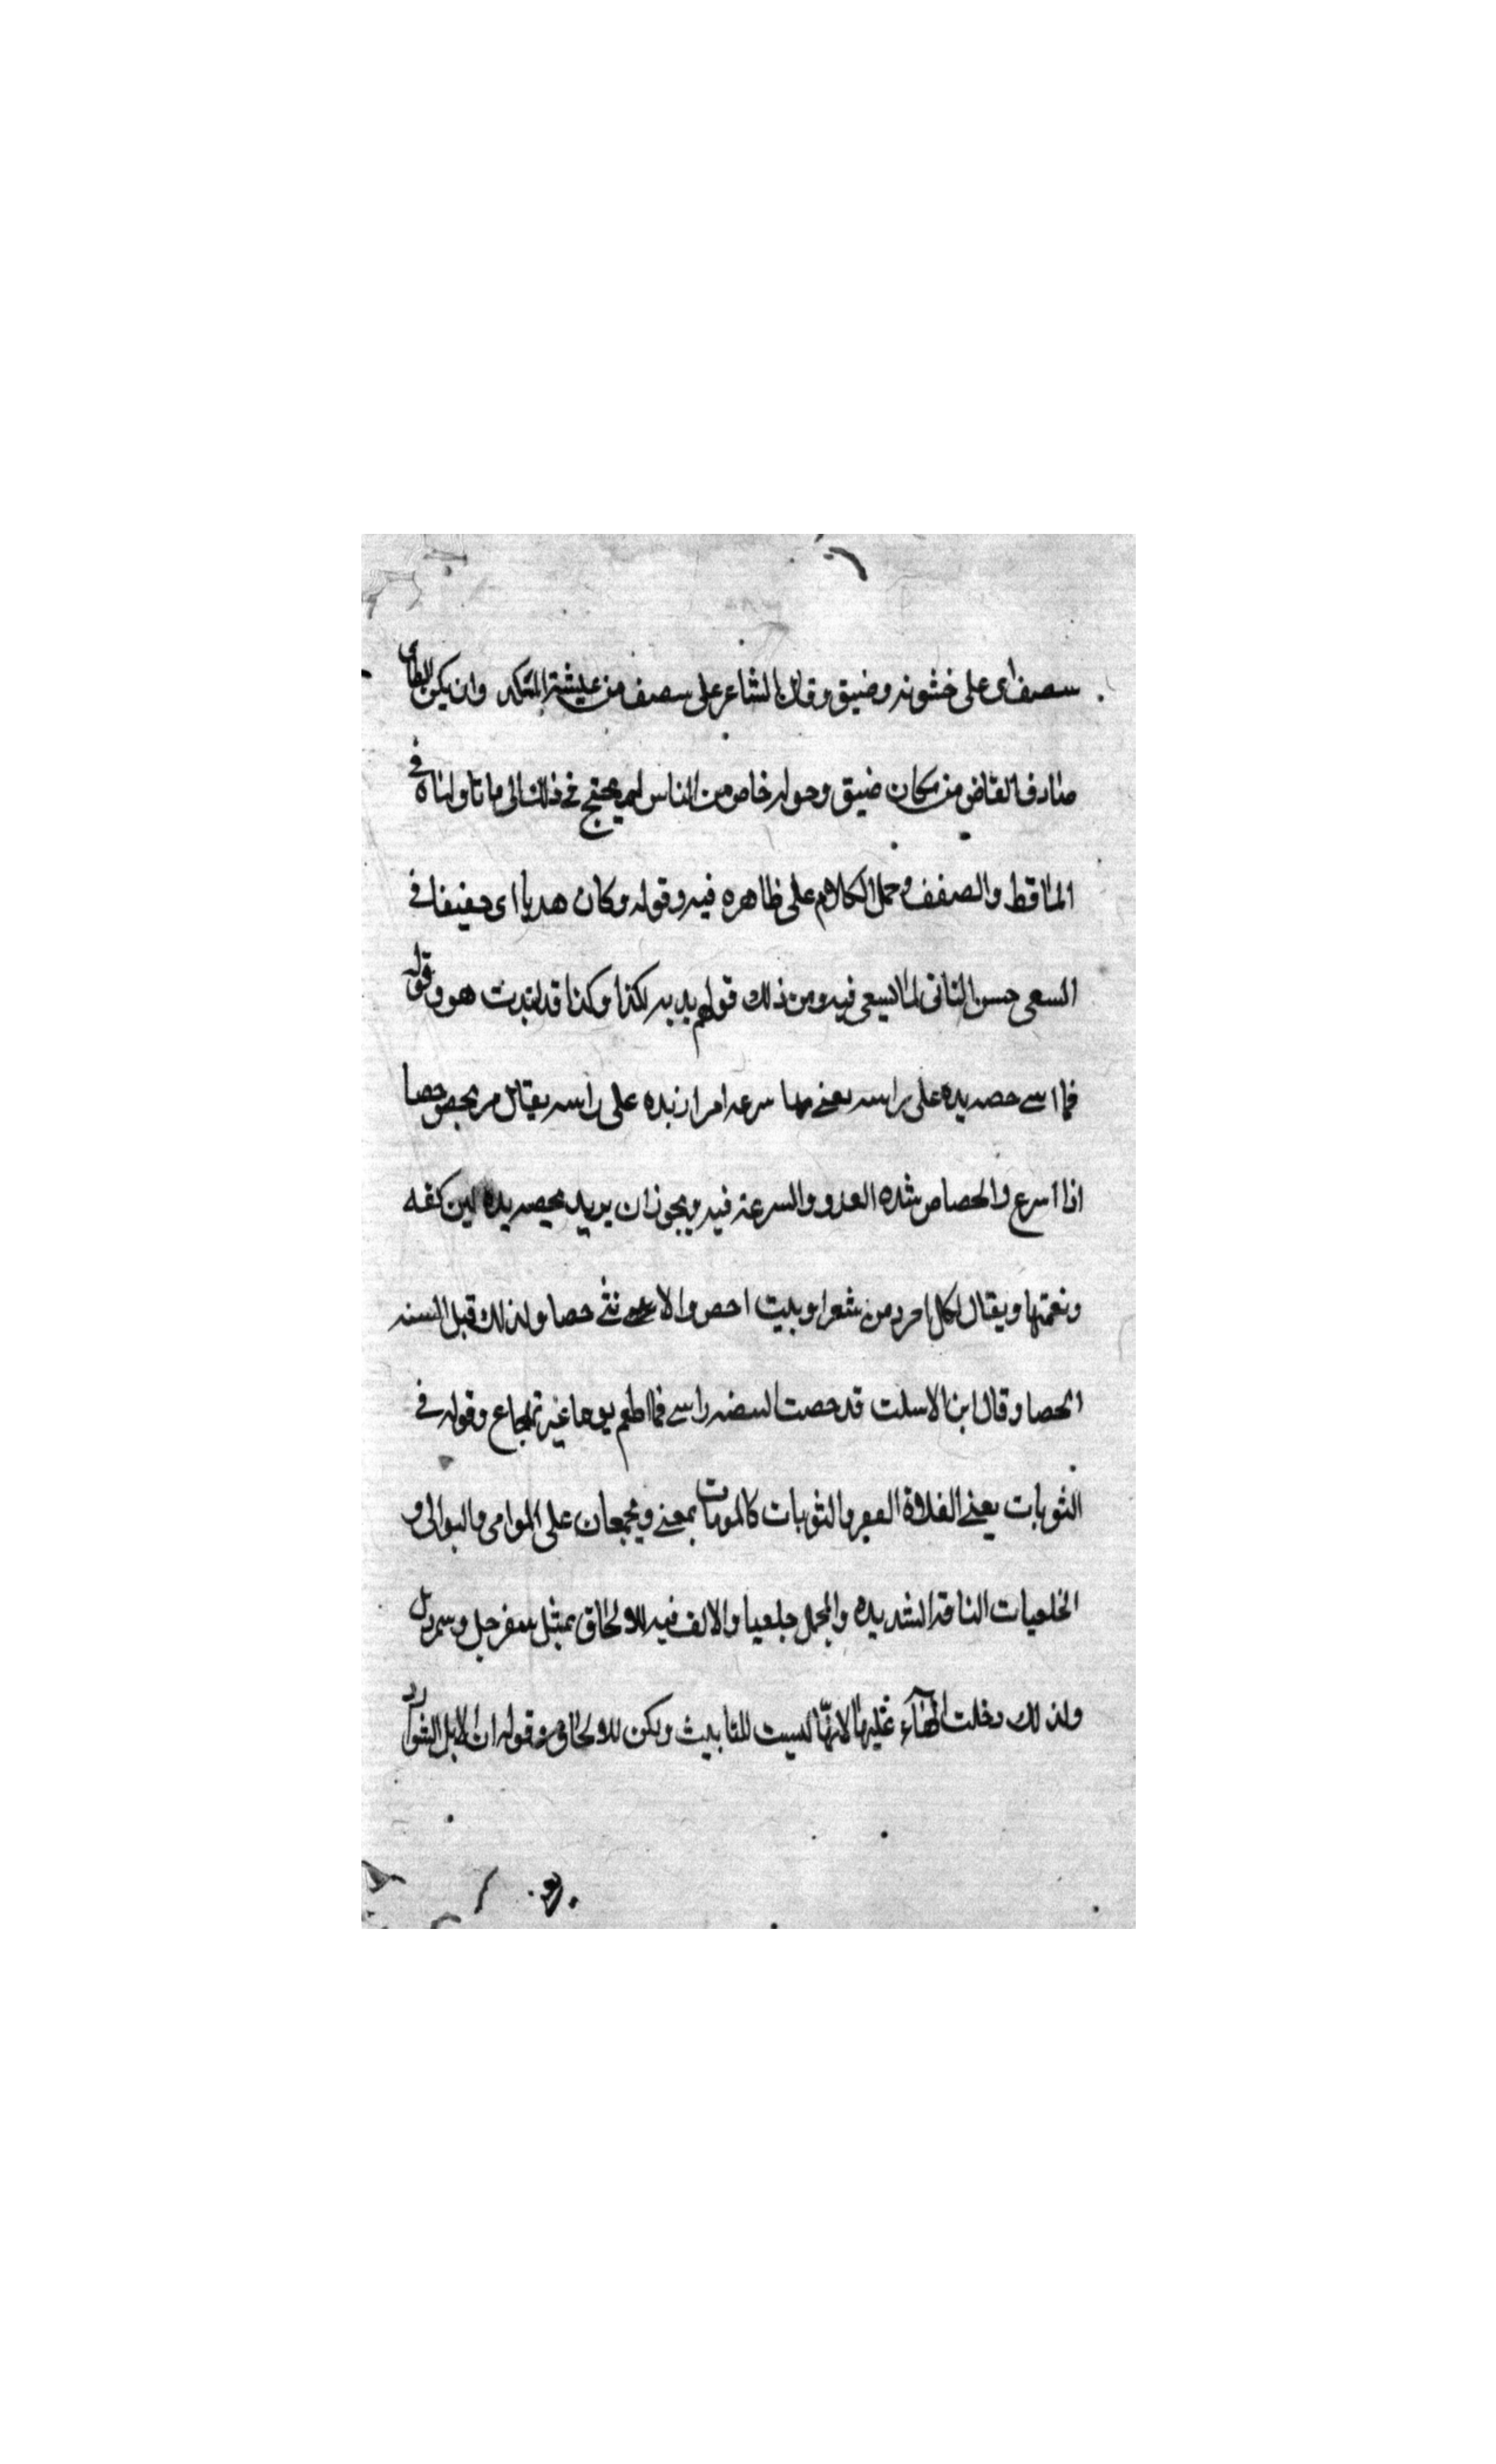 سصف اى على خشونه وضيق وقال الشاعر على سصف من عيشته المنكد وان يكن البطاى
صادف القاضى من مكان ضيق وحوله خاص من الناس لم يحتج فى ذلك الى ما تاولناه فى
الماقط والصفف وحمل الكلام على ظاهره فيه وقوله وكان هديا اى خفيفا فى
السعى حسن التاتى لما يسعى فيه ومن ذلك قولهم يديه لكذا وكذا قد انتدبت هو وقوله
فما اسى حصه يده على راسه يعنى بها سرعه امرار يده على راسه يقال مر يحص حصا
اذا اسرع والحصاص شده العدو والسرعة فيه ويجوز ان يريد بحصه يده لين كفه
ونعمتها ويقال لكل اجرد من شعر او بيت احص والانثى حصا ولذلك قيل السنه
الحصا وقال ابن الاسلت قد حصت البيضه راسى فما اطعم يوما غير تهجاع وقوله فى
الثوبات يعنى الفلاة القفر والثوبات كالمومات بمعنى ويجمعان على الموامى والبوالى و
الخلعيات الناقه الشديده والجمل جلعيا والالف فيه للالحاق بمثل سفرجل وسمردل
ولذلك دخلت الهآء عليها لانها ليست للتانيث ولكن للالحاق وقوله ان الابل الشوارد